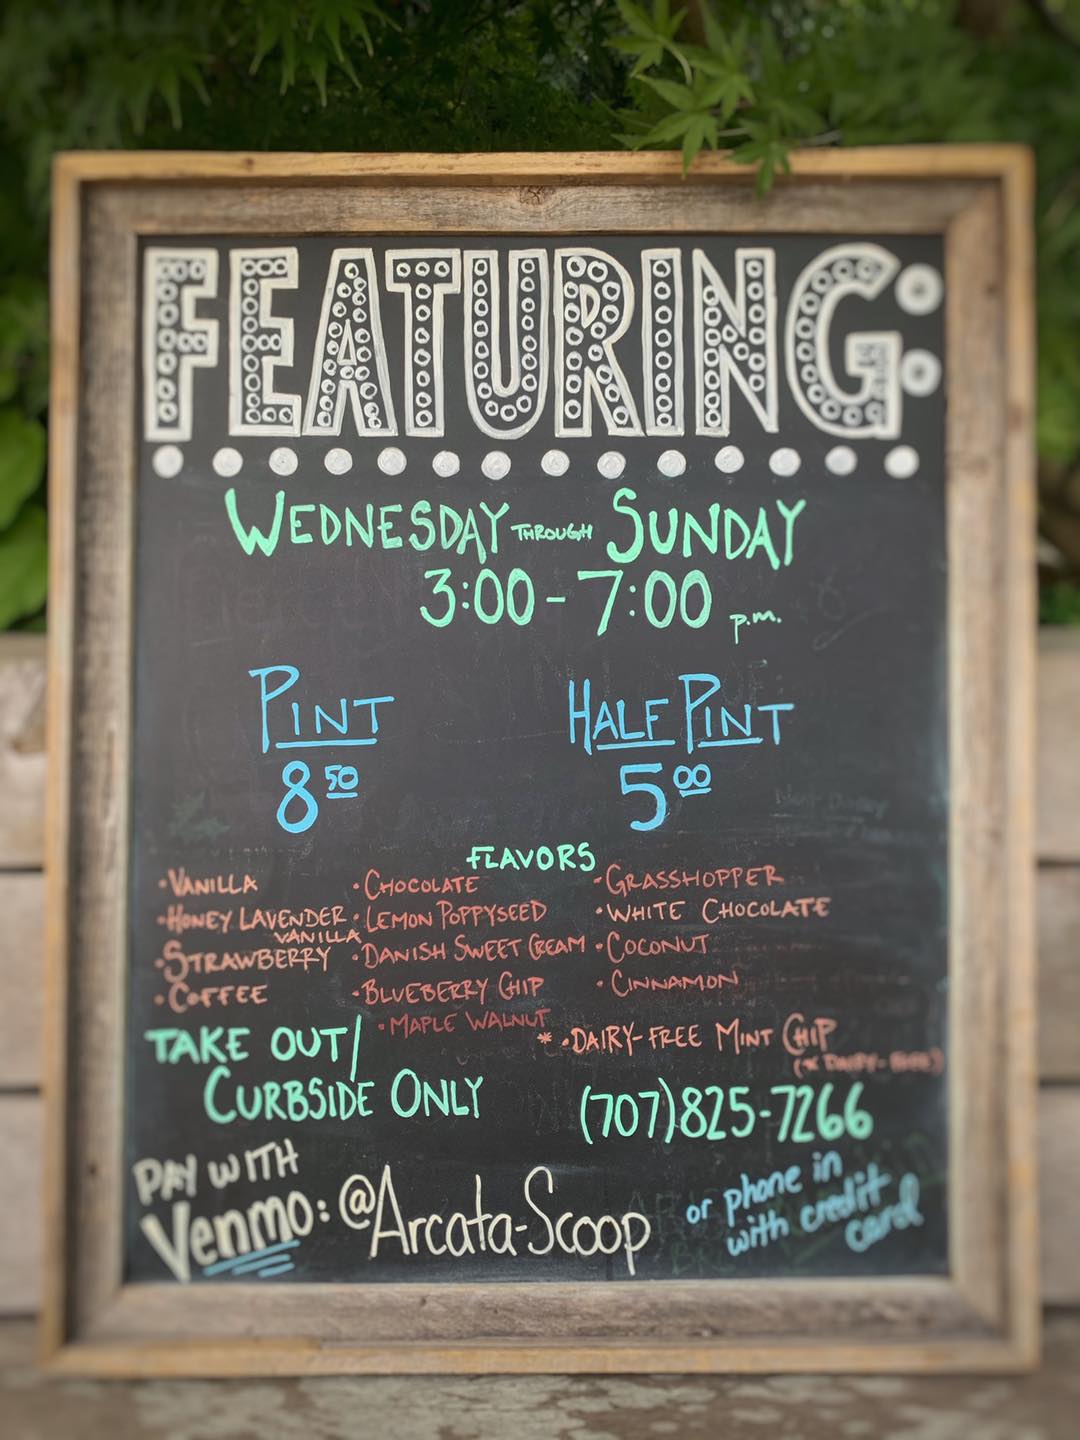 FEATURING:
WEDNESDAY THROUGH SUNDAY
3:00 - 7:00 p.m.
PINT
8 50
HALF PINT
5 00
FLAVORS
• VANILLA
• HONEY LAVENDER
VANILLA
• STRAWBERRY
• COFFEE
• CHOCOLATE
• LEMON POPPYSEED
• DANISH SWEET CREAM
• BLUEBERRY CHIP
• MAPLE WALNUT
• GRASSHOPPER
• WHITE CHOCOLATE
• COCONUT
• CINNAMON
* • DAIRY-FREE MINT CHIP
(* DAIRY-FREE)
TAKE OUT/
CURBSIDE ONLY
(707)825-7266
PAY WITH
Venmo: @Arcata-Scoop
or phone in
with credit
card